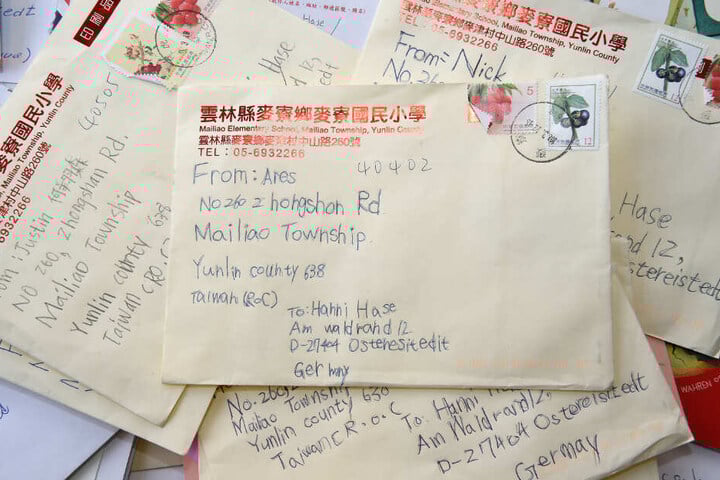 印刷品
麥寮國民小學
Mailiao Township, Yunlin County
中山路260號
40505
From: Justin
No 260, Zhongshan Rd.
Mailiao Township
Yunlin county 638
Taiwan (R.O.
Hase
雲林縣麥寮鄉麥寮國民小學
Mailiao Elementary School, Mailiao Township, Yunlin County
雲林縣麥寮鄉麥津村中山路260號
TEL：05-6932266
5
12
40402
From: Ares
No 260 Zhongshan Rd
Mailiao Township.
Yunlin county 638
Taiwan (RoC)
To: Hanni Hase
Am waldrand 12
D-27404 Osteresitedit
Germany
麥寮鄉麥寮國民小學
Elementary School, Mailiao Township, Yunlin County
麥寮鄉麥津村中山路260號
05-6932266
From: Nick
No 260
12
Hase
and 12,
Ostereistedt
No. 260,
Mailiao Township
Yunlin county 638
Taiwan C R.O.C
To: Hanni
Am Waldrand 12,
D-27404 Ostereistedt
Germay
WAHREN